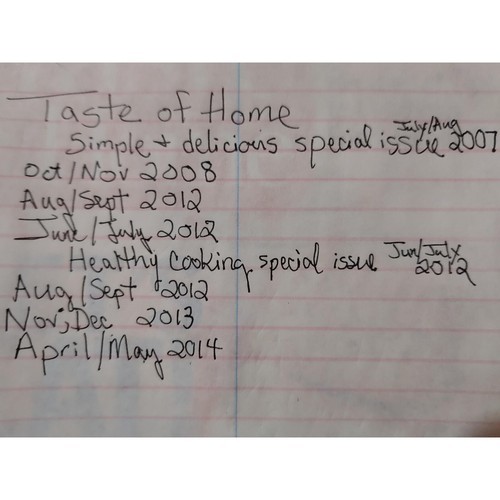 Taste of Home
Simple + delicious special issue July/Aug 2007
Oct/Nov 2008
Aug/Sept 2012
June/July 2012
Healthy Cooking special issue Jun/July 2012
Aug/Sept 2012
Nov,Dec 2013
April/May 2014